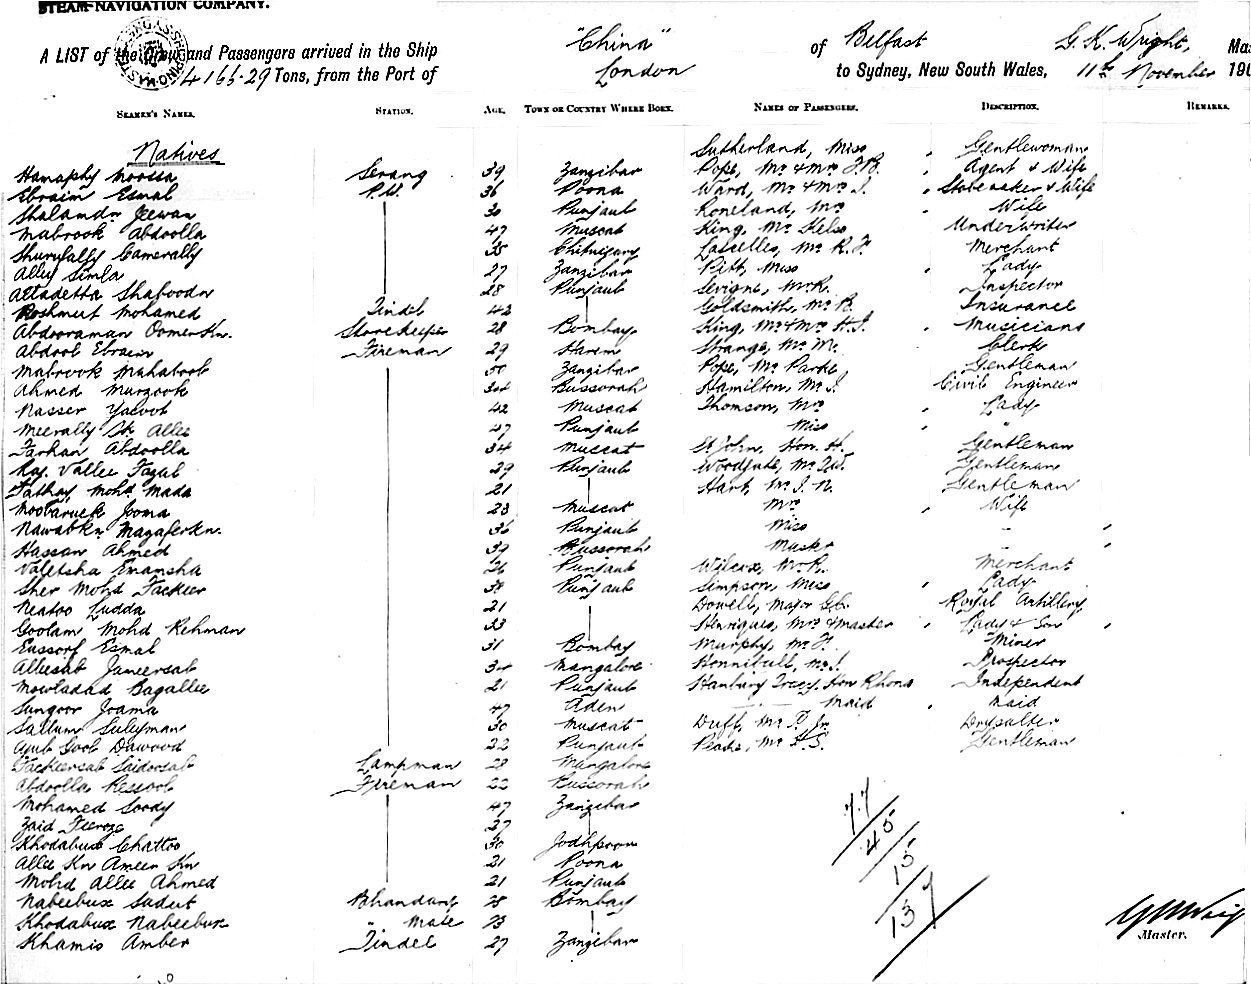 STEAM-NAVIGATION COMPANY.
A LIST of the Crew and Passengers arrived in the Ship "China" of Belfast G. K. Wright, Mas
4165.29 Tons, from the Port of London to Sydney, New South Wales, 11th November 190
SEAMEN'S NAMES. STATION. AGE. TOWN OR COUNTRY WHERE BORN. NAMES OF PASSENGERS. DESCRIPTION. REMARKS.
Natives Sutherland, Miss Gentlewoman
Moossa Serang 39 Zanzibar Pope, Mr & Mrs Agent & Wife
Ebraim Esmal 36 Poona Ward, Mr & Mrs J. & Wife
Jeewan 30 Punjaub Roneland, Mrs Wife
Mabrook Abdoolla 47 Muscat King, Mr Kelso Underwriter
35 Lascelles, Mr R. F. Merchant
Ally Simla 27 Zanzibar Pitt, Miss Lady
Shaboodn 28 Punjaub Sevigne, Mr R. Inspector
Mohamed Tindel 42 Goldsmith, Mr R. Insurance
Abdooraman Storekeeper 28 Bombay King, Mr & Mrs H. J. Musicians
Abdool Ebraim Fireman 29 Strange, Mr M. Clerk
Mabrook Mahaboob 30 Zanzibar Pope, Mr Parke Gentleman
Ahmed Murzook 34 Bussorah Hamilton, Mr J. Civil Engineer
Nasser Yacoot 42 Muscat Thomson, Mrs Lady
Meerally Sk Allee 47 Punjaub Miss "
Farhan Abdoolla 34 Muscat St John, Hon. H. Gentleman
Vallee Fazul 29 Punjaub Woodgate, Mr Gentleman
Mohd Mada 21 Hart, Mr J. N. Gentleman
Moobaruck Jooma 23 Muscat Mrs Wife
Nawabkn Mazaferkn. 36 Punjaub Miss -
Hassan Ahmed 39 Bussorah Master -
Valetsha Emamsha 26 Punjaub Wilcox, Mr R. Merchant
Sher Mohd Fackeer 38 Punjaub Simpson, Miss Lady
Neatoo Ludda 21 Dowell, Major Royal Artillery
Goolam Mohd Rehman 33 Henriques, Mrs & Master Lady & Son
Eussorf Esmal 31 Bombay Murphy, Mr F. Miner
Alleesab Jameersab 34 Mangalore Honniball, Mr J. Prospector
Mowladad Bagallee 21 Punjaub Hanbury Tracy, Hon Rhona Independent
Sungoor Jooma 47 Aden Maid Maid
Sallum Sulyman 30 Muscat Duff, Mr Drysalter
Ayub Goob Dawood 22 Punjaub Peake, Mr F. S. Gentleman
Fackeersab Saidoosab Lampman 28 Mangalore
Abdoolla Ressool Fireman 22 Bussorah
Mohamed Soody 47 Zanzibar
Zaid Feeroze 27
Khodabux Chattoo 30 Jodhpoor
Allee Kn Ameen Kn 21 Poona
Mohd Allee Ahmed 21 Punjaub
Nabeebux Bhandary 28 Bombay
Khodabux Nabeebux " Mate 23
Khamis Amber Tindel 27 Zanzibar
77
45
15
137
Master.